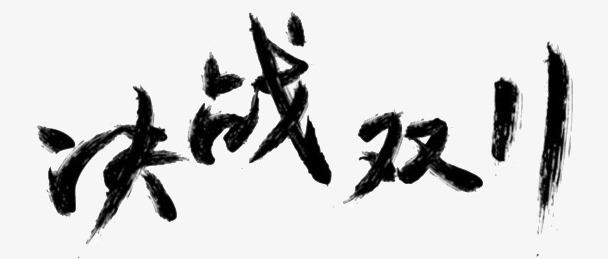 决战双11